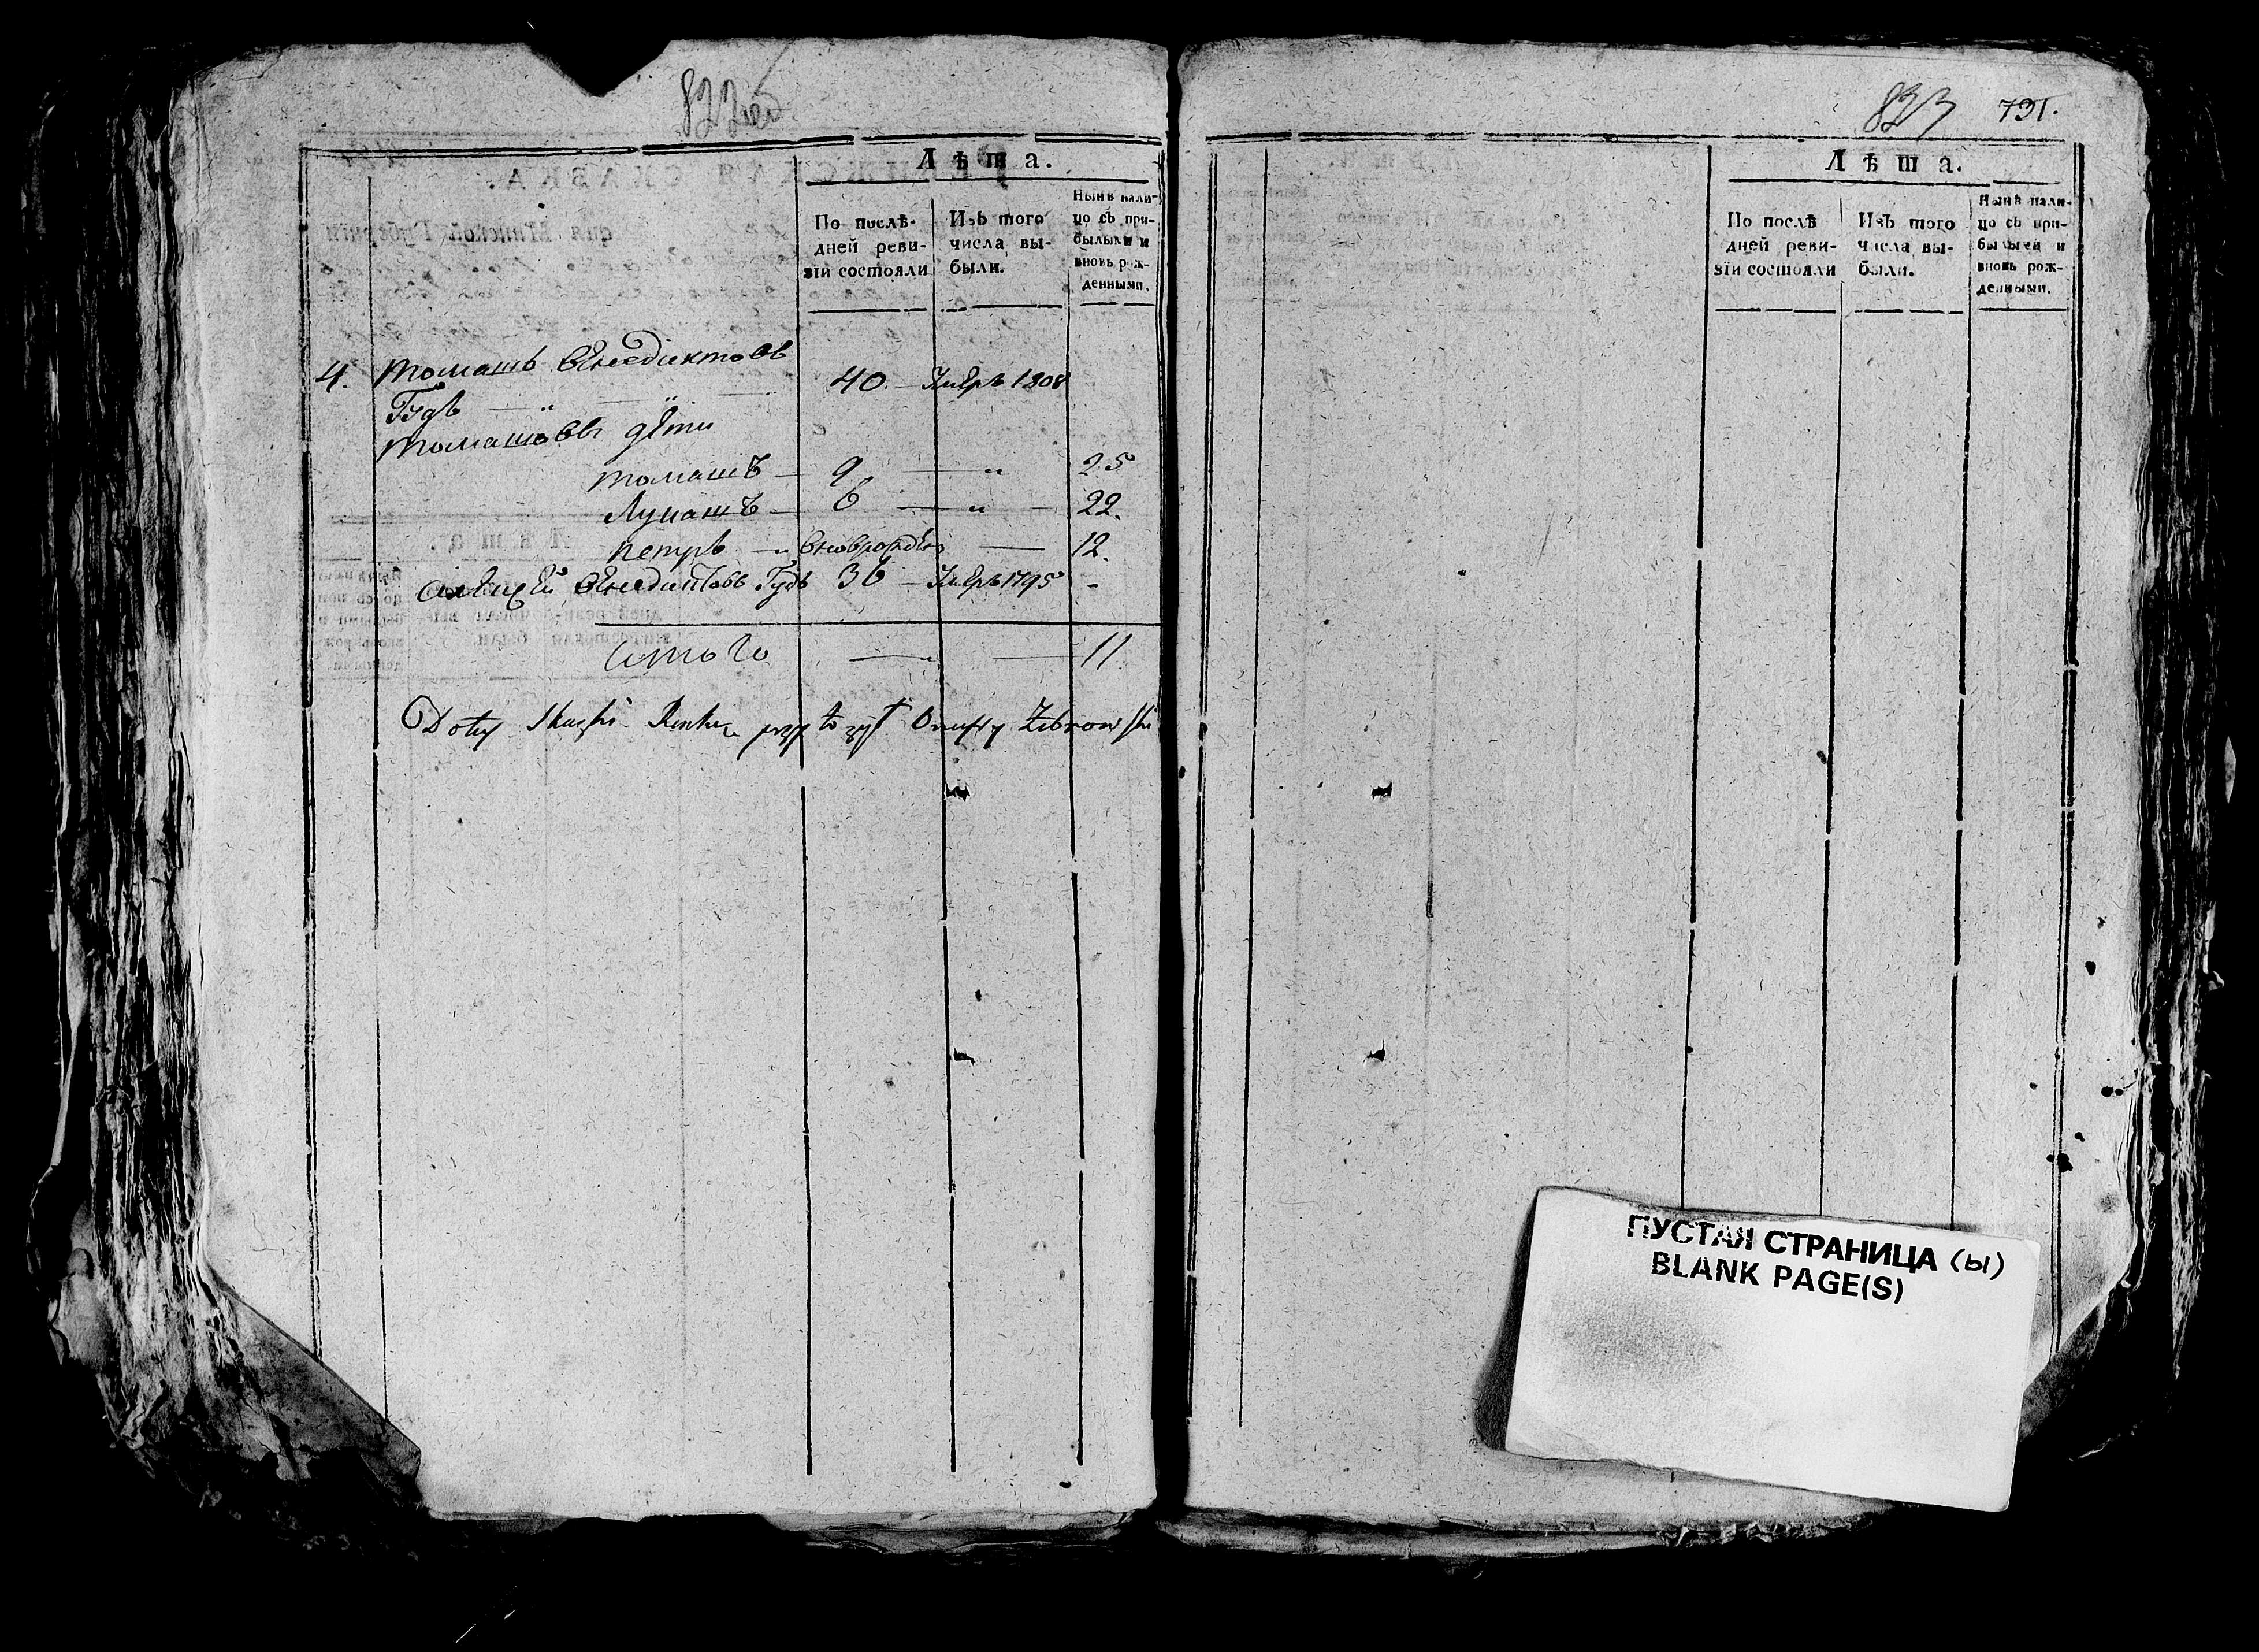 822об
Лѣта.
По послѣ-
дней реви-
зіи состояли
Изъ того
числа вы-
были.
Нынѣ нали-
цо съ при-
былыми и
вновь рож-
денными.
4. Томашъ Венедиктовъ
Гудъ — " — " — 40 — Умеръ 1808
Томашовы дѣти
Томашъ — 9 — " 25
Лукашъ — 6 — " — 22.
Петръ — " вновьрожден — 12.
Алексей Венедиктовъ Гудъ 36 — Умеръ 1795 -
Итого — " — 11
Do tey Skazki Renko przytozył Onufry Zebrowski
823 791.
Лѣта.
По послѣ
дней реви-
зіи состояли
Изъ того
числа вы-
были.
Нынѣ нали-
цо съ при-
былыми и
вновь рож-
денными.
ПУСТАЯ СТРАНИЦА (Ы)
BLANK PAGE(S)